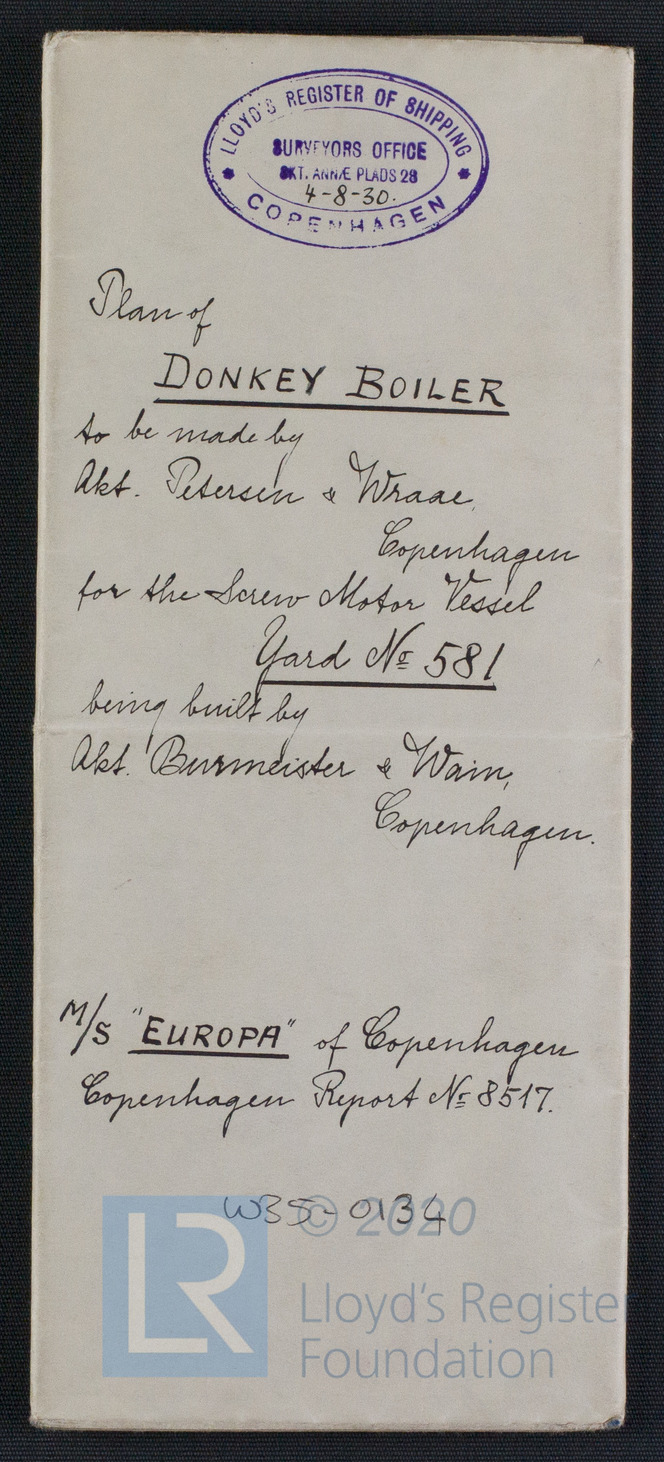 LLOYD'S REGISTER OF SHIPPING
SURVEYORS OFFICE
SKT. ANNÆ PLADS 28
4-8-30.
COPENHAGEN
Plan of
DONKEY BOILER
to be made by
Akt. Petersen & Wraae,
Copenhagen
for the Screw Motor Vessel
Yard No 581
being built by
Akt. Burmeister & Wain,
Copenhagen.
M/S "EUROPA" of Copenhagen
Copenhagen Report No 8517.
W35-0134
© 2020
LR
Lloyd's Register
Foundation